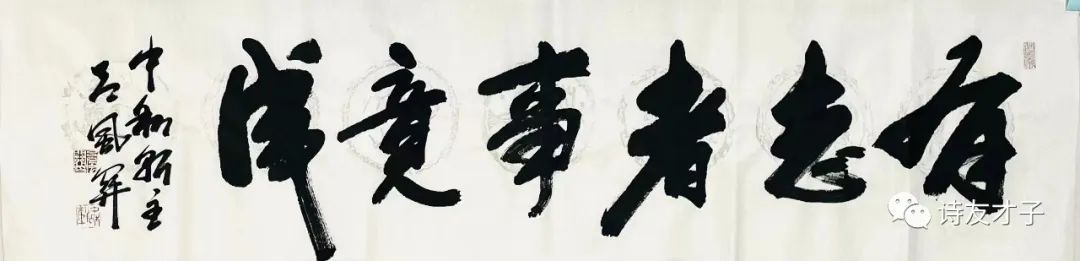 有志者事竟成
中和轩主
诗友才子